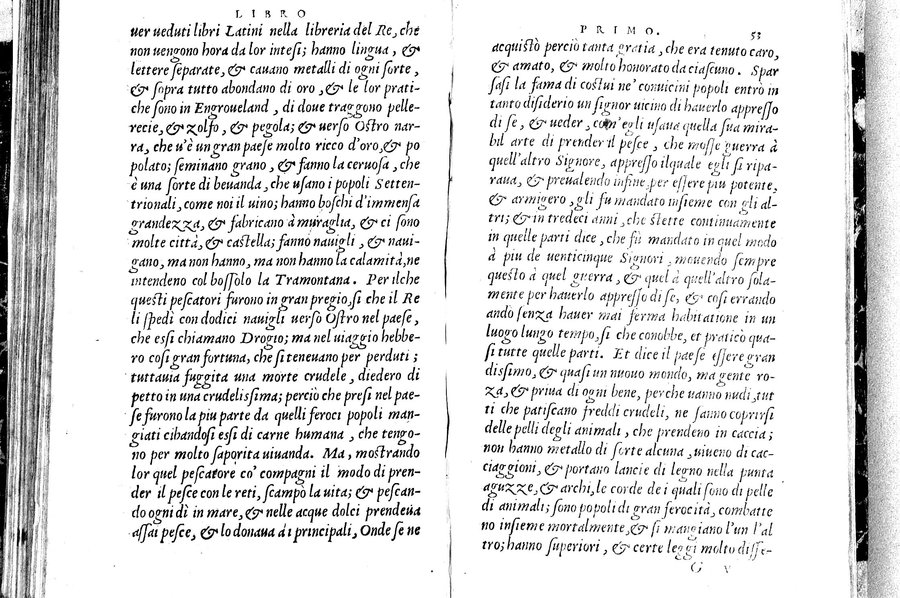 LIBRO
uer ueduti libri Latini nella libreria del Re, che
non uengono hora da lor intesi; hanno lingua, &
lettere separate, & cauano metalli di ogni sorte,
& sopra tutto abondano di oro, & le lor prati-
che sono in Engroueland, di doue traggono pelle-
recie, & zolfo, & pegola; & uerso Ostro nar-
ra, che u'è un gran paese molto ricco d'oro, & po
polato; seminano grano, & fanno la ceruosa, che
è una sorte di beuanda, che usano i popoli Setten-
trionali, come noi il uino; hanno boschi d'immensa
grandezza, & fabricano à muraglia, & ci sono
molte città, & castella; fanno nauigli, & naui-
gano, ma non hanno, ma non hanno la calamità, ne
intendeno col bossolo la Tramontana. Per ilche
questi pescatori furono in gran pregio, si che il Re
li spedì con dodici nauigli uerso Ostro nel paese,
che essi chiamano Drogio; ma nel uiaggio hebbe-
ro così gran fortuna, che si teneuano per perduti;
tuttauia fuggita una morte crudele, diedero di
petto in una crudelissima; perciò che presi nel pae-
se furono la piu parte da quelli feroci popoli man-
giati cibandosi essi di carne humana, che tengo-
no per molto saporita uiuanda. Ma, mostrando
lor quel pescatore co' compagni il modo di pren-
der il pesce con le reti, scampò la uita; & pescan-
do ogni dì in mare, & nelle acque dolci prendeua
assai pesce, & lo donaua à i principali, Onde se ne
PRIMO. 53
acquistò perciò tanta gratia, che era tenuto caro,
& amato, & molto honorato da ciascuno. Spar
sasi la fama di costui ne' conuicini popoli entrò in
tanto disiderio un signor uicino di hauerlo appresso
di se, & ueder, com'egli usaua quella sua mira-
bil arte di prender il pesce, che mosse guerra à
quell'altro Signore, appresso ilquale egli si ripa-
raua, & preualendo infine, per essere piu potente,
& armigero, gli fu mandato insieme con gli al-
tri; & in tredeci anni, che stette continuamente
in quelle parti dice, che fù mandato in quel modo
à piu de uenticinque Signori, mouendo sempre
questo à quel guerra, & quel à quell'altro sola-
mente per hauerlo appresso di se, & così errando
ando senza hauer mai ferma habitatione in un
luogo lungo tempo, si che conobbe, et praticò qua-
si tutte quelle parti. Et dice il paese essere gran
dissimo, & quasi un nuouo mondo, ma gente ro-
za, & priua di ogni bene, perche uanno nudi, tut
ti che patiscano freddi crudeli, ne sanno coprirsi
delle pelli degli animali, che prendeno in caccia;
non hanno metallo di sorte alcuna, uiueno di cac-
ciaggioni, & portano lancie di legno nella punta
aguzze, & archi, le corde de i quali sono di pelle
di animali; sono popoli di gran ferocità, combatte
no insieme mortalmente, & si mangiano l'un l'al
tro; hanno superiori, & certe leggi molto diffe-
G v